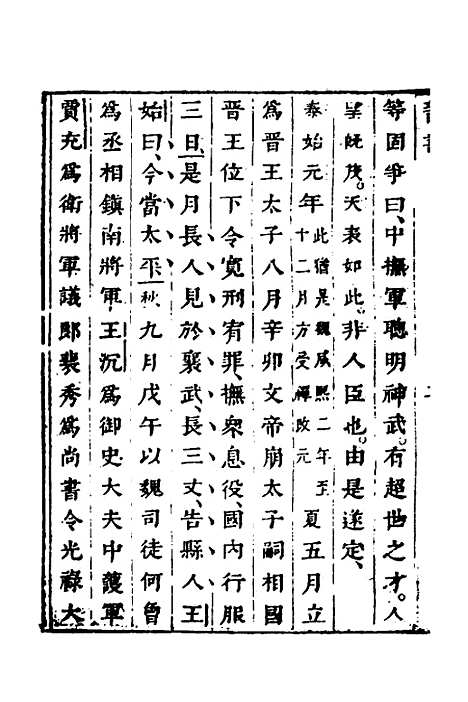 等固爭曰、中撫軍聰明神武。有超世之才。人
望旣茂。天表如此。非人臣也。由是遂定、
泰始元年此猶是魏咸熙二年至十二月方受禪改元夏五月立
爲晉王太子八月辛卯文帝崩太子嗣相國
晉王位下令寬刑宥罪、撫衆息役、國內行服
三日、是月長人見於襄武、長三丈、告縣人王
始曰、今當太平、秋九月戊午以魏司徒何曾
爲丞相鎮南將軍王沉爲御史大夫中護軍
賈充爲衛將軍議郎裴秀爲尚書令光祿大